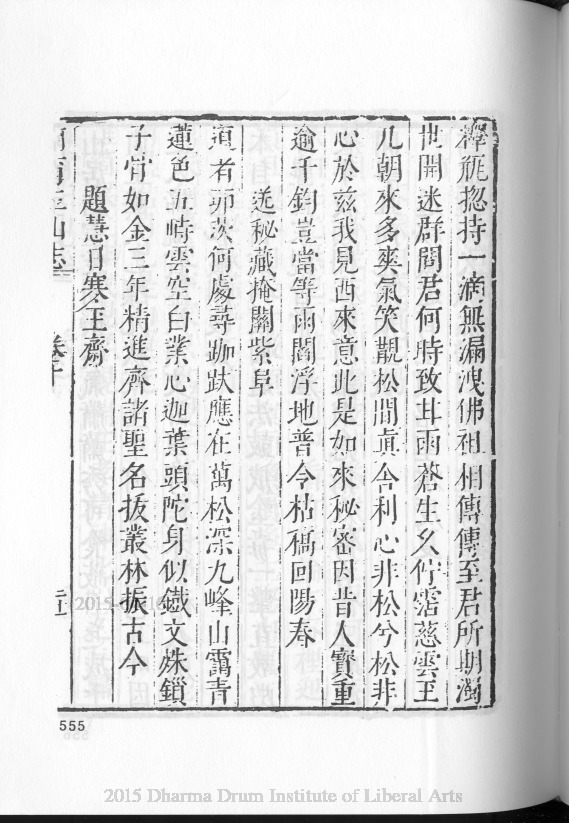 釋瓶揔持一滴無漏洩佛祖相傳傳至君所期濁
世開迷群閻君何時致甘雨蒼生久佇霑慈雲王
几朝來多爽氣笑觀松間眞舍利心非松兮松非
心於兹我見西來意此是如來秘密因昔人寶重
逾千鈞豈當等雨閻浮地普令枯槁回陽春
送秘藏掩關紫阜
道者茆茨何處尋跏趺應在萬松深九峰山靄青
蓮色五峙雲空白業心迦葉頭陀身似鐵文殊鎖
子骨如金三年精進齊諸聖名拔叢林振古今
題慧日寒玉齋
山志 卷十
555
2015 Dharma Drum Institute of Liberal Arts